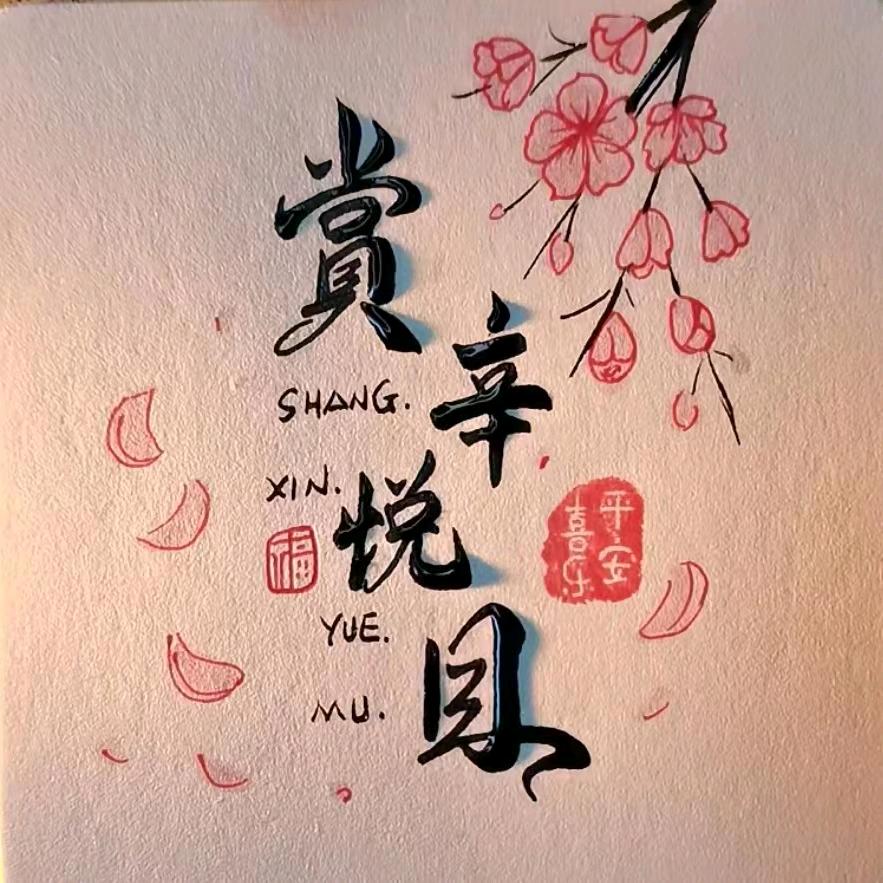 賞
辛
悦
目
SHANG.
XIN.
YUE.
MU.
福
平安
喜乐